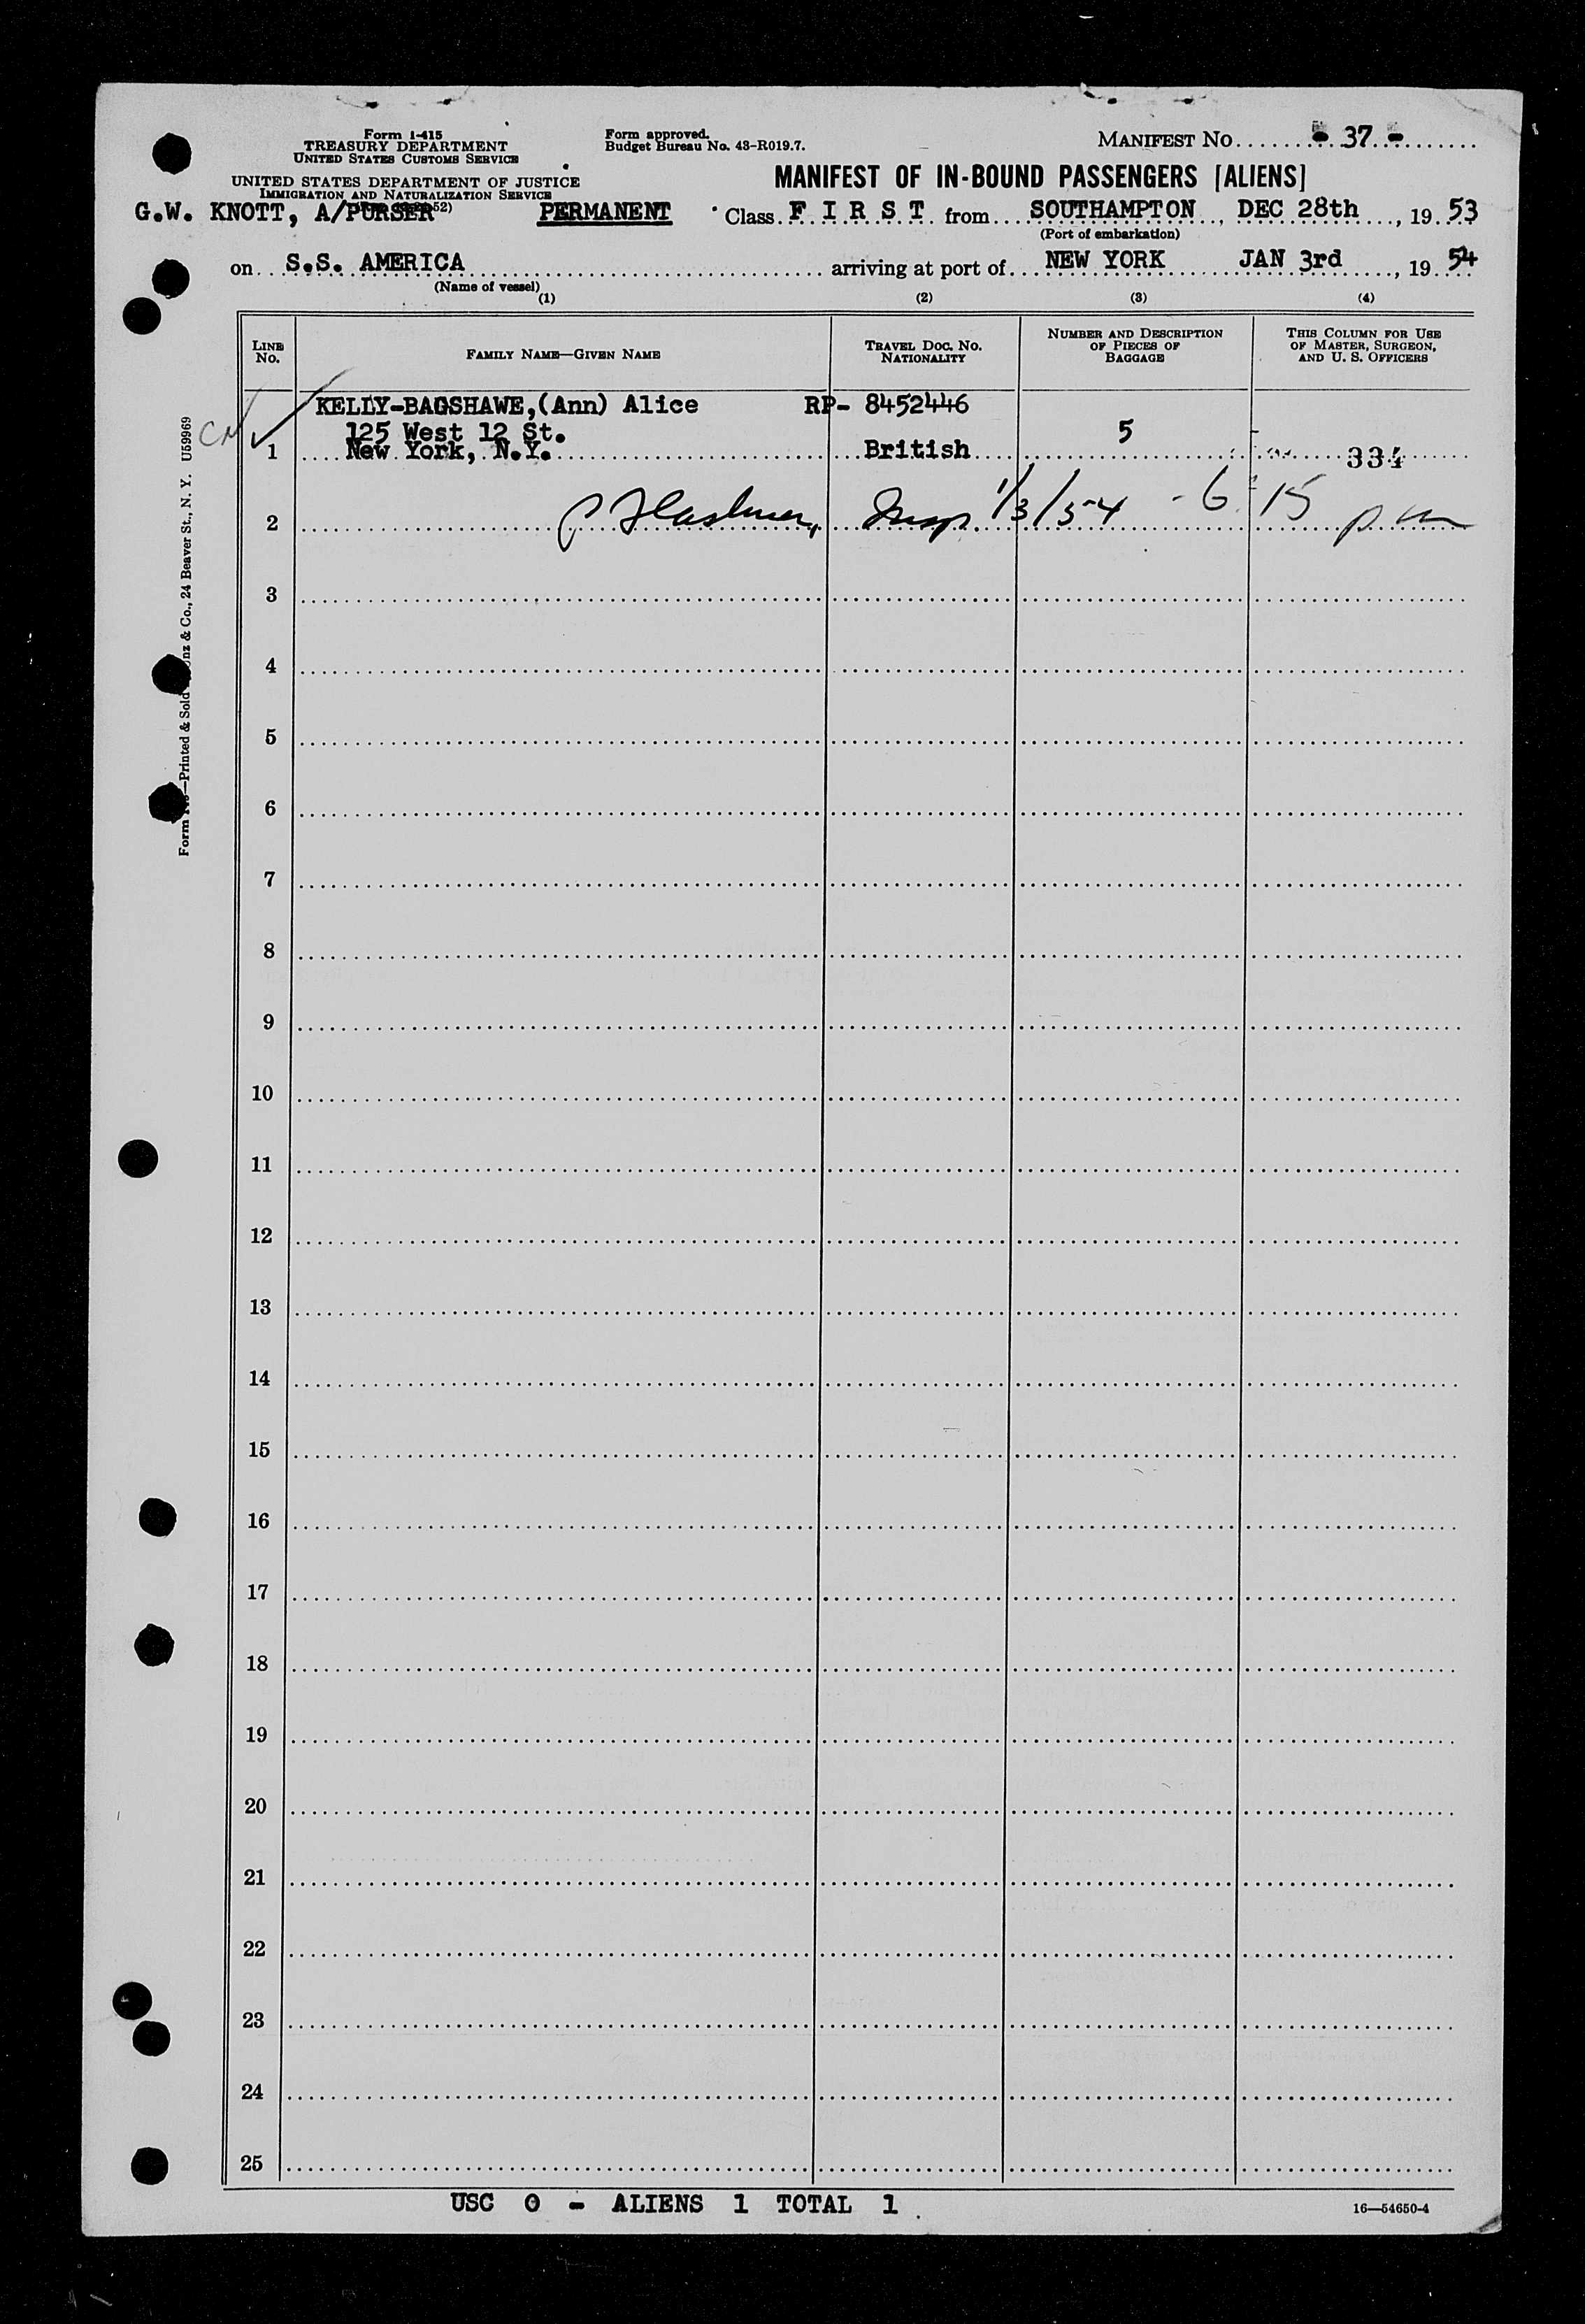 Form I-415
TREASURY DEPARTMENT
UNITED STATES CUSTOMS SERVICE
Form approved.
Budget Bureau No. 43-R019.7.
MANIFEST No. - 37 -
UNITED STATES DEPARTMENT OF JUSTICE
IMMIGRATION AND NATURALIZATION SERVICE
MANIFEST OF IN-BOUND PASSENGERS [ALIENS]
G.W. KNOTT, A/PURSER 52) PERMANENT Class F I R S T from SOUTHAMPTON, DEC 28th, 19 53
(Port of embarkation)
on S.S. AMERICA arriving at port of NEW YORK JAN 3rd, 19 54
(Name of vessel)
(1) (2) (3) (4)
LINE No.
FAMILY NAME—GIVEN NAME
TRAVEL DOC. NO. NATIONALITY
NUMBER AND DESCRIPTION OF PIECES OF BAGGAGE
THIS COLUMN FOR USE OF MASTER, SURGEON, AND U. S. OFFICERS
KELLY-BAGSHAWE,(Ann) Alice RP- 8452446
125 West 12 St. 5
1 New York, N.Y. British 334
2 Insp 1/3/54 - 6:15 pm
3
4
5
6
7
8
9
10
11
12
13
14
15
16
17
18
19
20
21
22
23
24
25
USC 0 - ALIENS 1 TOTAL 1
16—54650-4
Printed & Sold
& Co., 24 Beaver St., N. Y. U59969